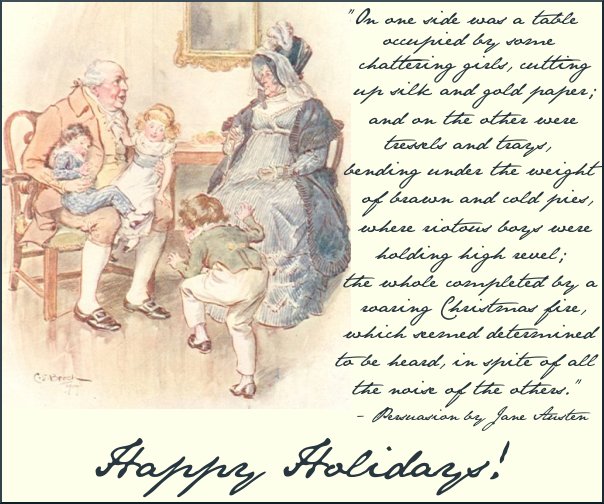 "On one side was a table
occupied by some
chattering girls, cutting
up silk and gold paper;
and on the other were
tressels and trays,
bending under the weight
of brawn and cold pies,
where riotous boys were
holding high revel;
the whole completed by a
roaring Christmas fire,
which seemed determined
to be heard, in spite of all
the noise of the others."
- Persuasion by Jane Austen
Happy Holidays!